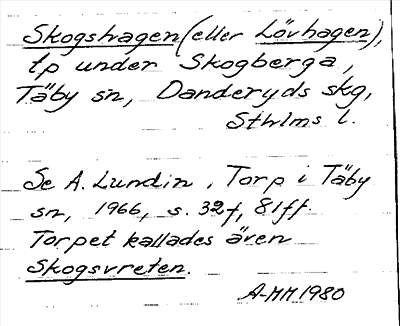 Skogshagen (eller Lövhagen),
tp under Skogberga,
Täby sn, Danderyds skg,
Sthlms l.
Se A. Lundin, Torp i Täby
sn, 1966, s. 32f, 81ff.
Torpet kallades även
Skogsvreten.
A-MM 1980